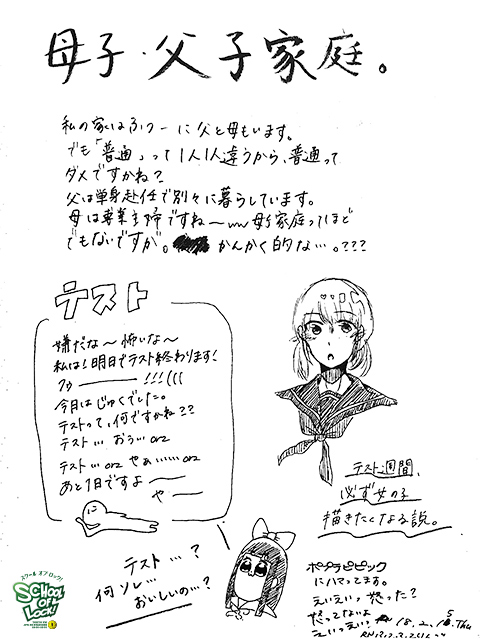 母子・父子家庭。
私の家はふつーに父と母もいます。
でも「普通」って1人1人違うから、普通って
ダメですかね?
父は単身赴任で別々に暮らしています。
母は専業主婦ですね〜ww母子家庭ってほど
でもないですが。かんかく的な…。???
テスト
嫌だな〜怖いな〜
私は!明日でテスト終わります!
!!!(((
今日はじゅくでした。
テストって、何ですかね??
テスト…おぅ…orz
テスト…orz やぁ……orz
あと1日ですよ〜
や〜
テスト週間、
必ず女の子
描きたくなる説。
テスト…?
何ソレ…
おいしいの…?
ポプテピピック
にハマってます。
えいえいっ怒った?
だってないよ
えいっえい?
18.2.15.Thu
スクール オブ ロック!
SCHOOL OF LOCK!